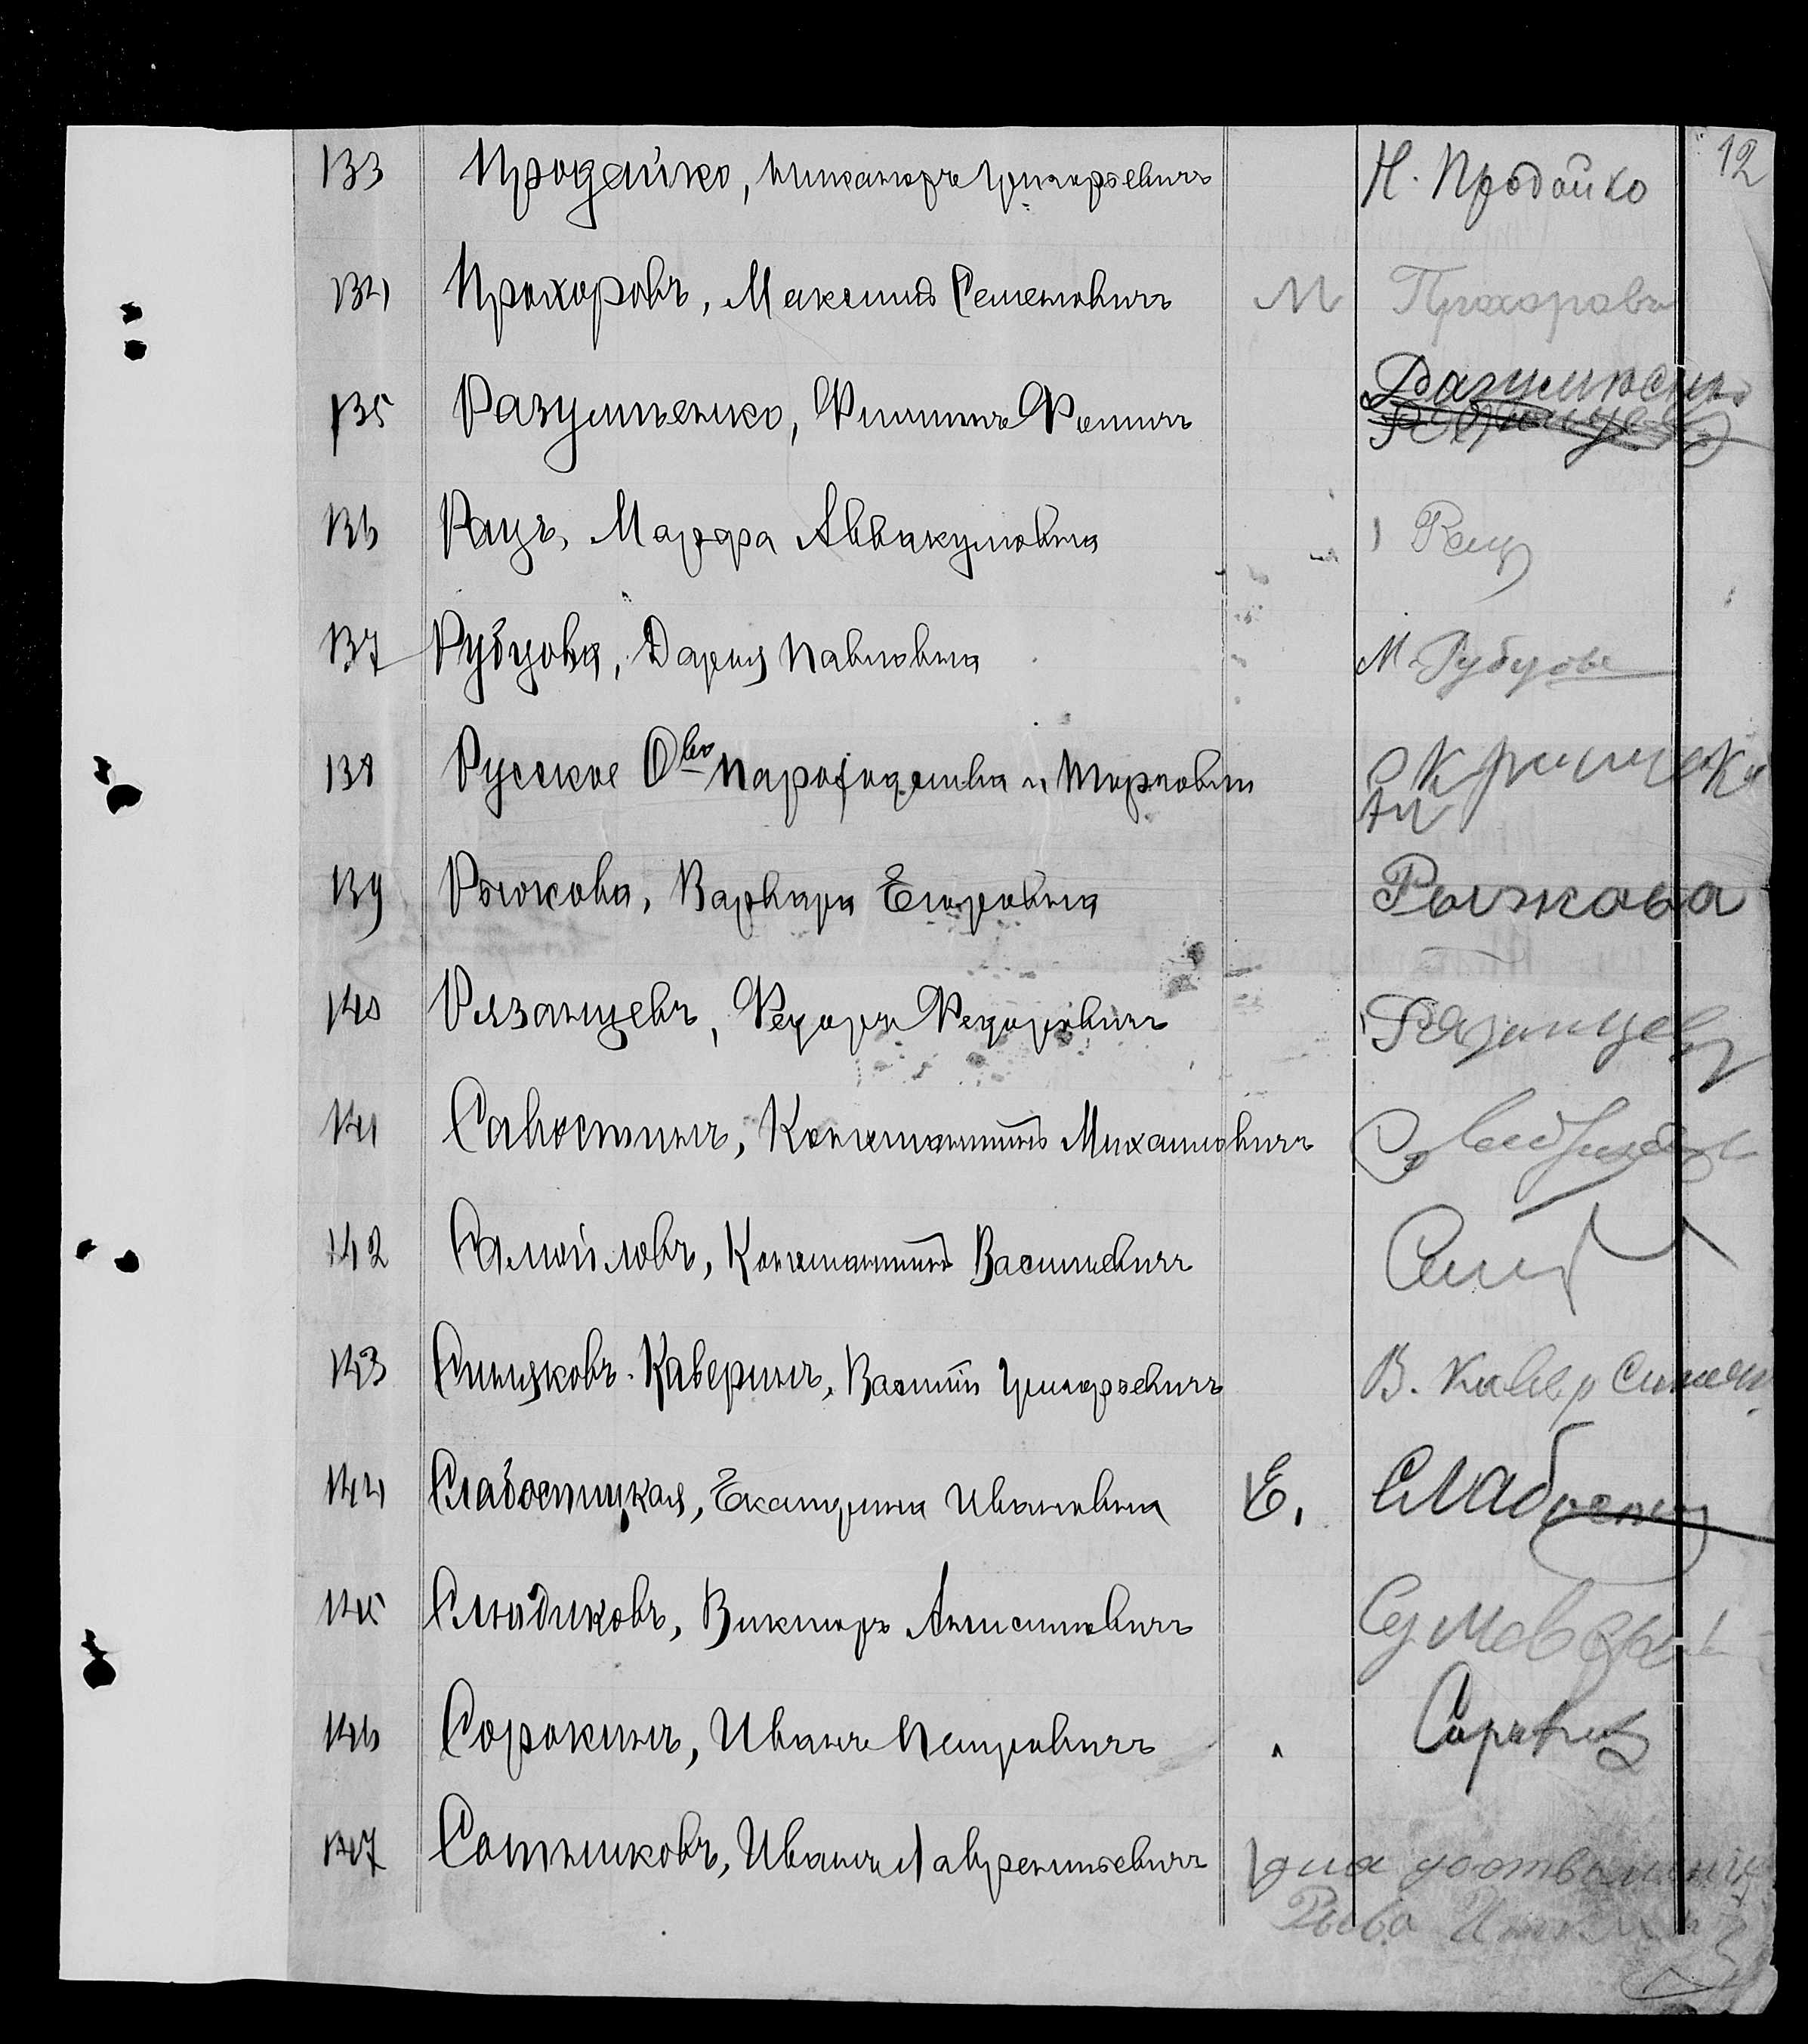 12
133 Продайко, Никаноръ Григорьевичъ Н. Продайко
134 Прохоровъ, Максимъ Семеновичъ М Прохоровъ
135 Разумѣенко, Филиппъ Фомичъ
136 Рацъ, Марфа Аввакумовна Рацъ
137 Рубцова, Дарья Павловна М. Рубцова
138 Русское О-во Пароходства и Торговли
139 Рыжкова, Варвара Егоровна Рыжкова
140 Рязанцевъ, Федоръ Федоровичъ Рязанцевъ
141 Савостинъ, Константинъ Михайловичъ
142 Самойловъ, Константинъ Васильевичъ
143 Синяковъ-Каверинъ, Василій Григорьевичъ В. Кавер Синяк
144 Слабостицкая, Екатерина Ивановна Е. Слабостиц
145 Слюдиковъ, Викторъ Анисимовичъ
146 Сорокинъ, Иванъ Петровичъ Сорокинъ
147 Сотниковъ, Иванъ Лаврентьевичъ